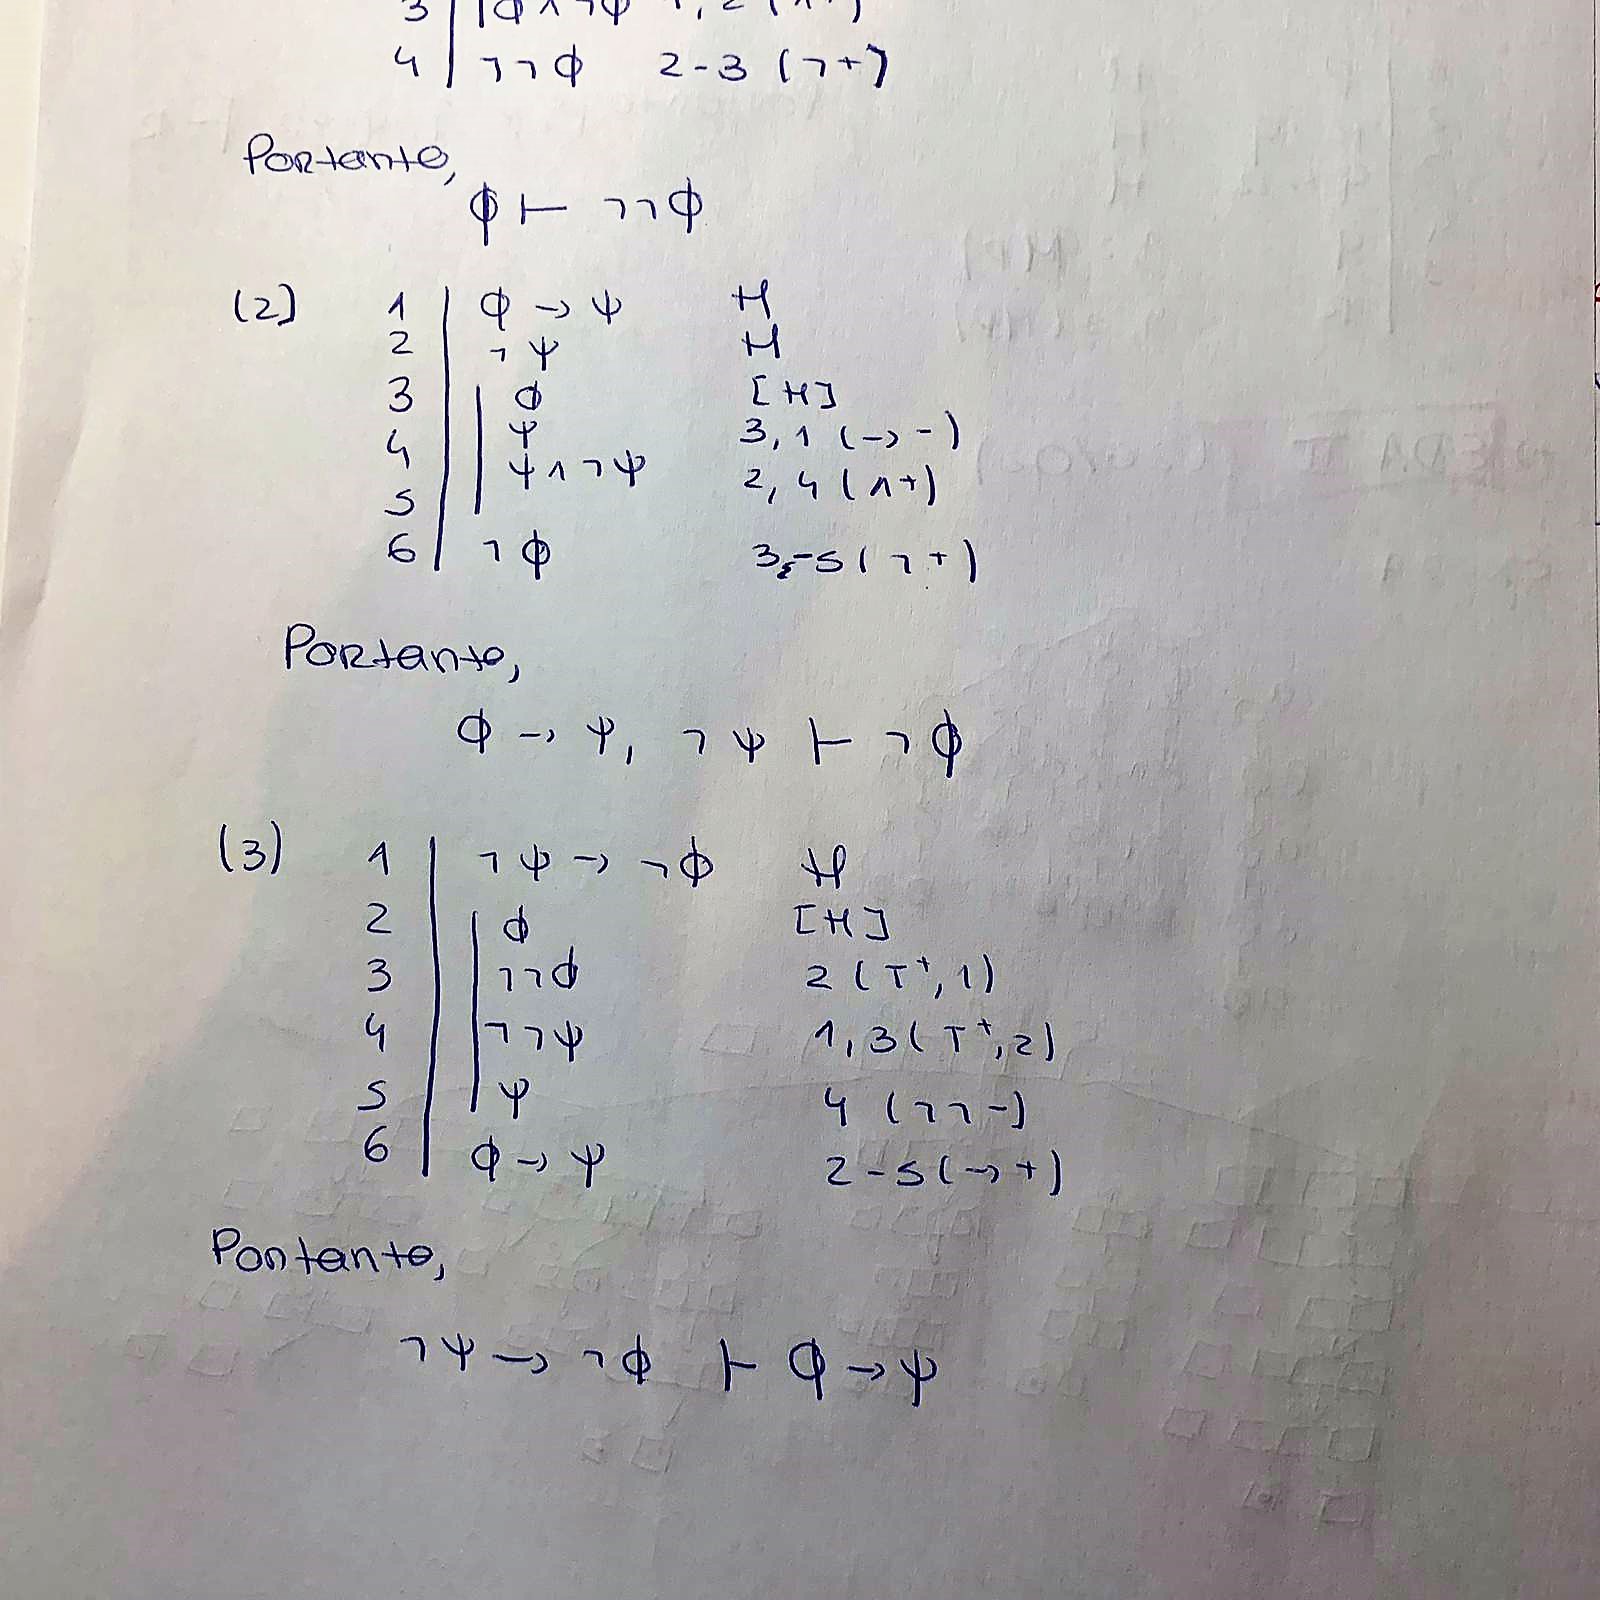 3 | ϕ ∧ ¬ϕ 1, 2 (∧+)
4 | ¬¬ϕ 2-3 (¬+)
Portanto,
ϕ ⊢ ¬¬ϕ
(2) 1 | ϕ → ψ H
2 | ¬ψ H
3 | | ϕ [H]
4 | | ψ 3, 1 (→ -)
5 | | ψ ∧ ¬ψ 2, 4 (∧+)
6 | ¬ϕ 3-5 (¬+)
Portanto,
ϕ → ψ, ¬ψ ⊢ ¬ϕ
(3) 1 | ¬ψ → ¬ϕ H
2 | | ϕ [H]
3 | | ¬¬ϕ 2 (T⁺, 1)
4 | | ¬¬ψ 1, 3 (T⁺, 2)
5 | | ψ 4 (¬¬-)
6 | ϕ → ψ 2-5 (→+)
Portanto,
¬ψ → ¬ϕ ⊢ ϕ → ψ